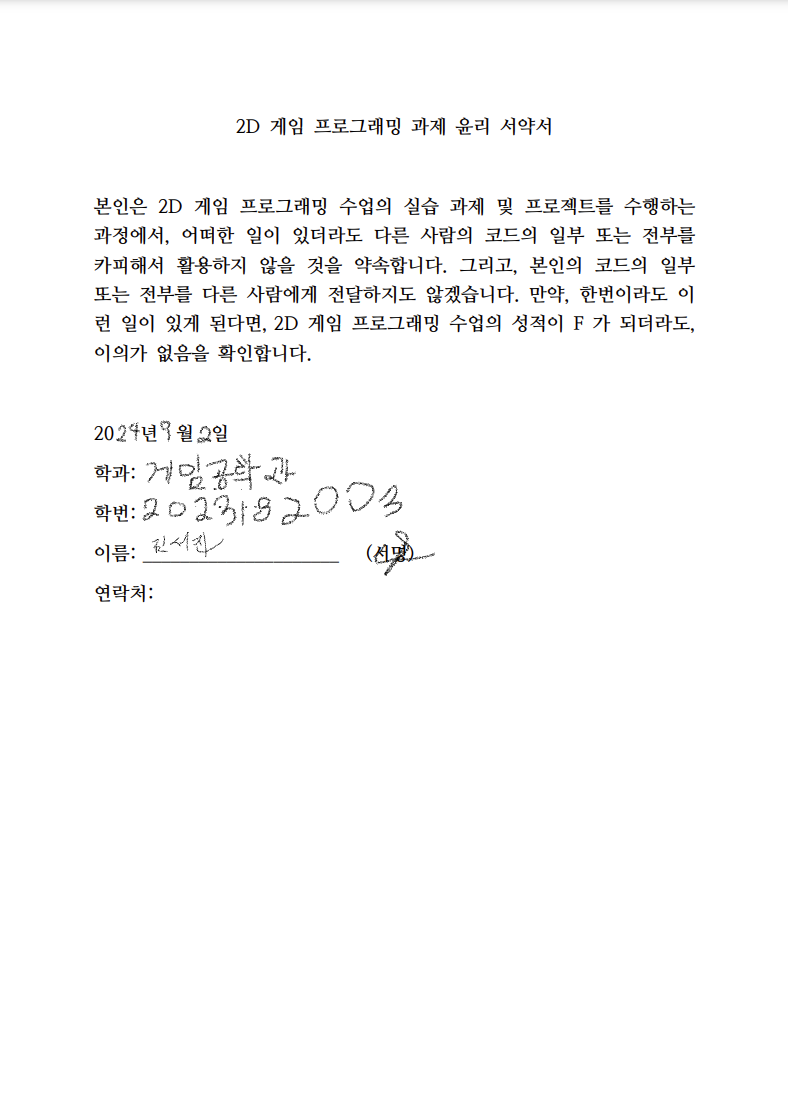 2D 게임 프로그래밍 과제 윤리 서약서
본인은 2D 게임 프로그래밍 수업의 실습 과제 및 프로젝트를 수행하는
과정에서, 어떠한 일이 있더라도 다른 사람의 코드의 일부 또는 전부를
카피해서 활용하지 않을 것을 약속합니다. 그리고, 본인의 코드의 일부
또는 전부를 다른 사람에게 전달하지도 않겠습니다. 만약, 한번이라도 이
런 일이 있게 된다면, 2D 게임 프로그래밍 수업의 성적이 F 가 되더라도,
이의가 없음을 확인합니다.
2024년 9월 2일
학과: 게임공학과
학번: 2023182003
이름: 김서진 (서명)
연락처: